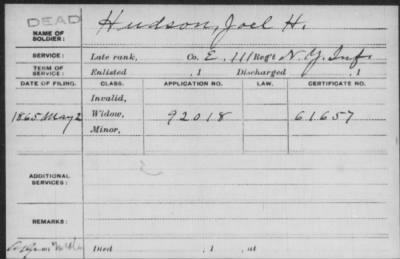 DEAD
NAME OF SOLDIER: Hudson, Joel H.
SERVICE: Late rank, Co. E, 111 Reg't N.Y. Inf.
TERM OF SERVICE: Enlisted , 1 Discharged , 1
DATE OF FILING. CLASS. APPLICATION NO. LAW. CERTIFICATE NO.
Invalid,
1865 May 2 Widow, 92018 61657
Minor,
ADDITIONAL SERVICES:
REMARKS:
Died , 1 , at